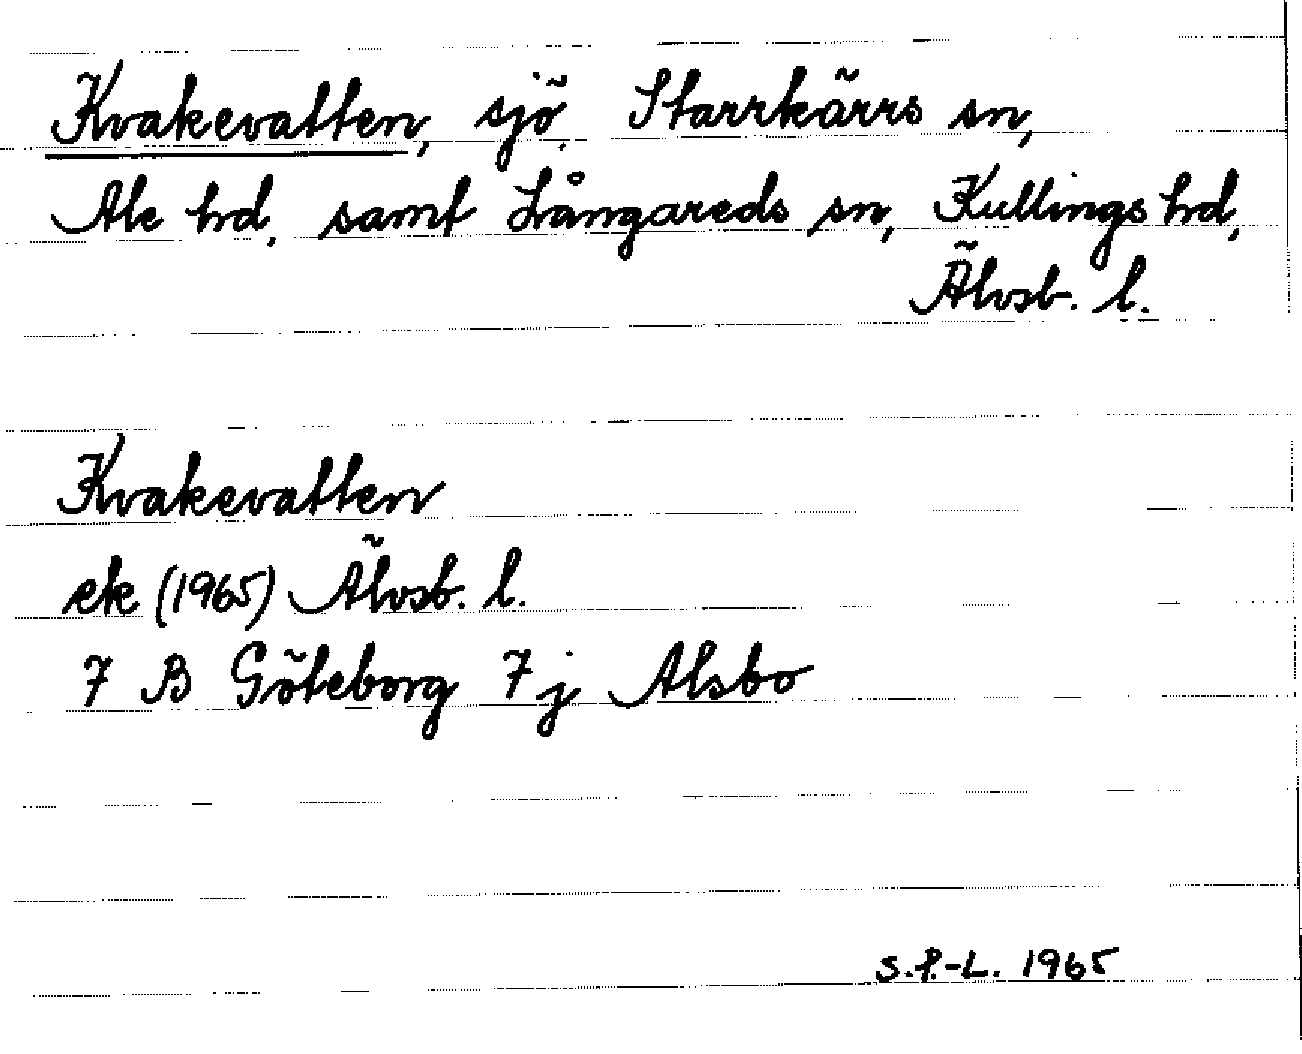 Kvakevatten, sjö, Starrkärrs sn,
Ale hd, samt Långareds sn, Kullings hd,
Älvsb. l.
Kvakevatten
ek (1965) Älvsb. l.
7 B Göteborg 7 j Alsbo
S.P.-L. 1965